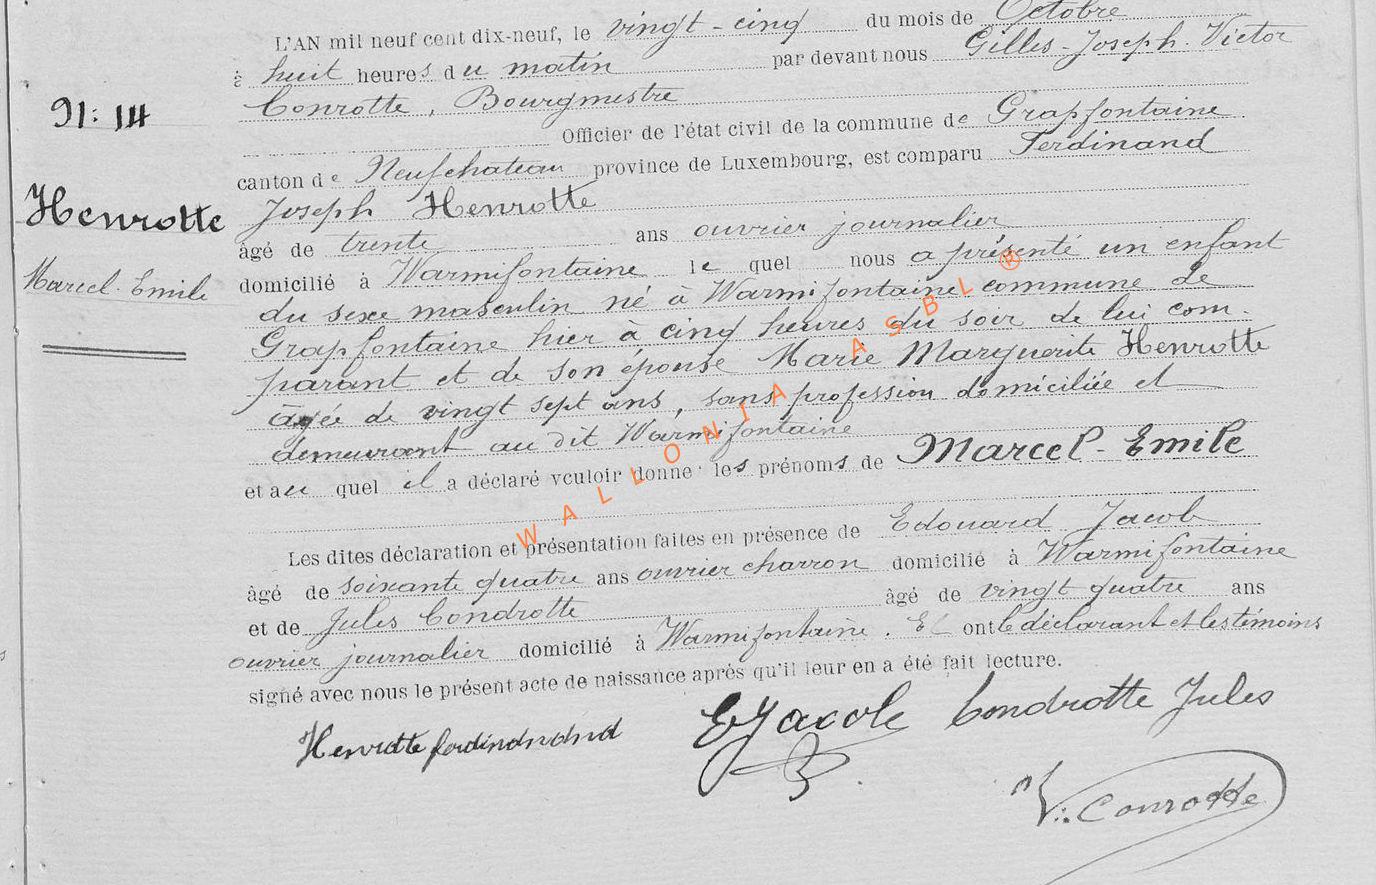 L'AN mil neuf cent dix-neuf, le vingt-cinq du mois de Octobre
à huit heures du matin par devant nous Gilles-Joseph-Victor
Conrotte, Bourgmestre
N: 14
Officier de l'état civil de la commune de Grapfontaine
canton de Neufchateau province de Luxembourg, est comparu Ferdinand
Henrotte
Joseph Henrotte
âgé de trente ans ouvrier journalier
Marcel-Emile
domicilié à Warmifontaine le quel nous a présenté un enfant
du sexe masculin né à Warmifontaine commune de
Grapfontaine hier à cinq heures du soir de lui com-
parant et de son épouse Marie Marguerite Henrotte
âgée de vingt sept ans, sans profession domiciliée et
demeurant au dit Warmifontaine
et au quel il a déclaré vouloir donner les prénoms de Marcel-Emile
WALLONIA ASBL ®
Les dites déclaration et présentation faites en présence de Edouard Jacob
âgé de soixante quatre ans ouvrier charron domicilié à Warmifontaine
et de Jules Condrotte âgé de vingt quatre ans
ouvrier journalier domicilié à Warmifontaine. Et ont le déclarant et les témoins
signé avec nous le présent acte de naissance après qu'il leur en a été fait lecture.
Henrotte EJacob Condrotte Jules
V. Conrotte